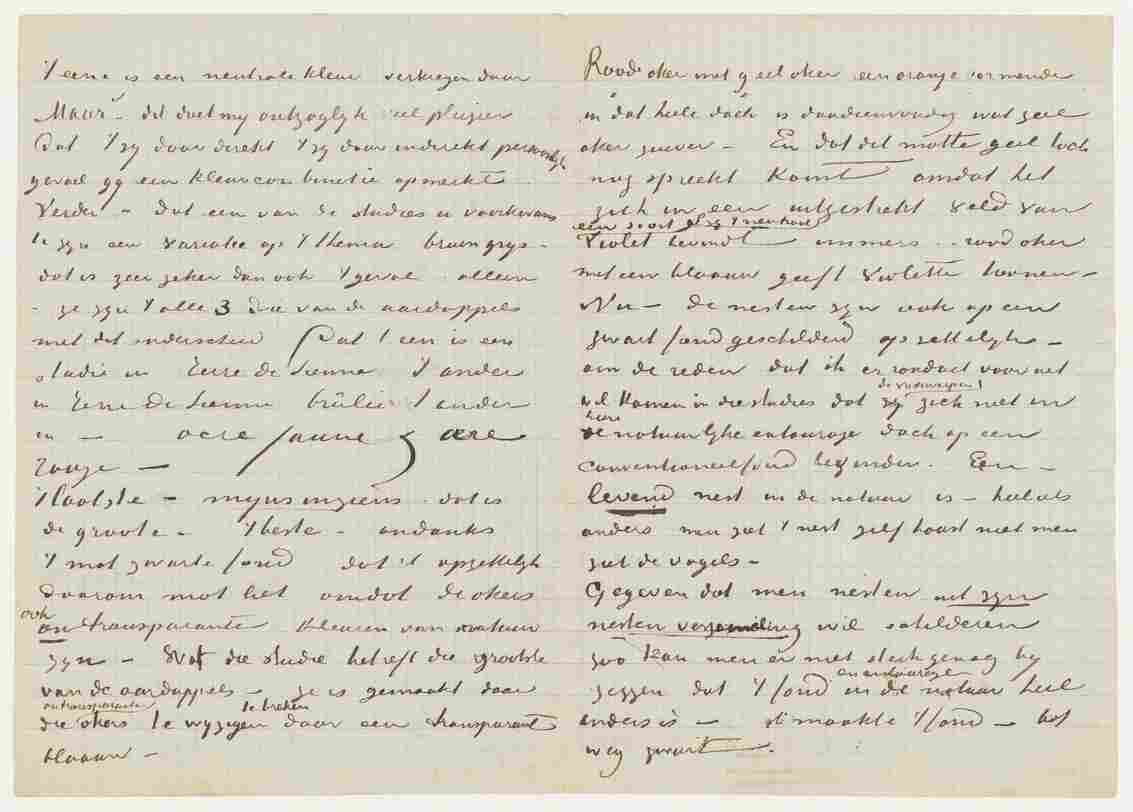 't eene is een neutrale kleur verkregen door
Maar – dit doet my ontzaglyk veel pleizier
Dat 't zy door direkt 't zy door indirekt persoonlyk
gevoel gy een kleurcombinatie opmerkt.
Verder – dat een van de studies u voorkwam
te zyn een variatie op 't thema bruin grys –
dat is zeer zeker dan ook 't geval – alleen
– ze zyn 't alle 3 die van de aardappels
met dit onderscheid Dat 't een is een
studie in Terre de Sienna 't ander
in Terre de Sienne brulée 't ander
in – ocre jaune & ocre
rouge –
't laatste – myns inziens – dat is
de groote – 't beste – ondanks
't mat zwarte fond dat 't opzettelyk
daarom mat liet omdat de okers
ook
on transparante kleuren van natuur
zyn – Wat die studie betreft die grootste
van de aardappels – ze is gemaakt door
ontransparante te breken
die okers te wyzigen door een transparant
blaauw –
Roode oker met geel oker een oranje vormende
in dat heele dood is daareenvoudig wat geel
oker zuiver – En dat dit matte geel toch
nog spreekt komt omdat het
zich in een uitgestrekt veld van
een soort zy 't neutraal
Violet bevindt immers – rood oker
met een blaauw geeft violette toonen –
Nu – de nesten zyn ook op een
zwart fond geschilderd opzettelyk –
om de reden dat ik er ronduit voor uit
de voorwerpen
wil komen in die studies dat zy zich niet in
hun
de natuurlyke entourage doch op een
conventioneel fond bevinden. Een –
levend nest in de natuur is – heel iets
anders men ziet 't nest zelf haast niet men
ziet de vogels –
Gegeven dat men nesten uit zyn
nesten verzameling wil schilderen
zoo kan men er niet sterk genoeg by
en entourage
zeggen dat 't fond in de natuur heel
anders is – ik maakte 't fond – bot
weg zwart –.